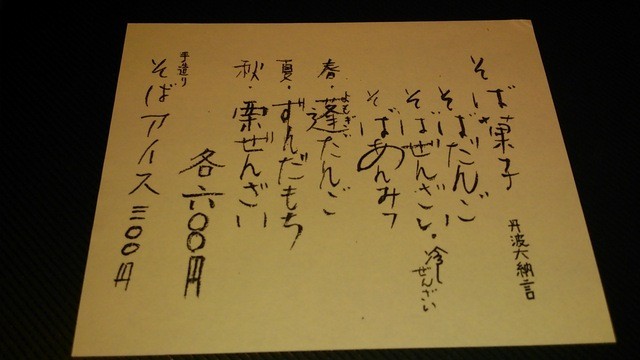 そば菓子
丹波大納言
そばだんご
そばぜんざい・冷しぜんざい
そばあんみつ
春・蓬だんご
よもぎ
夏・ずんだもち
秋・栗ぜんざい
各六〇〇円
手造り
そばアイス 三〇〇円